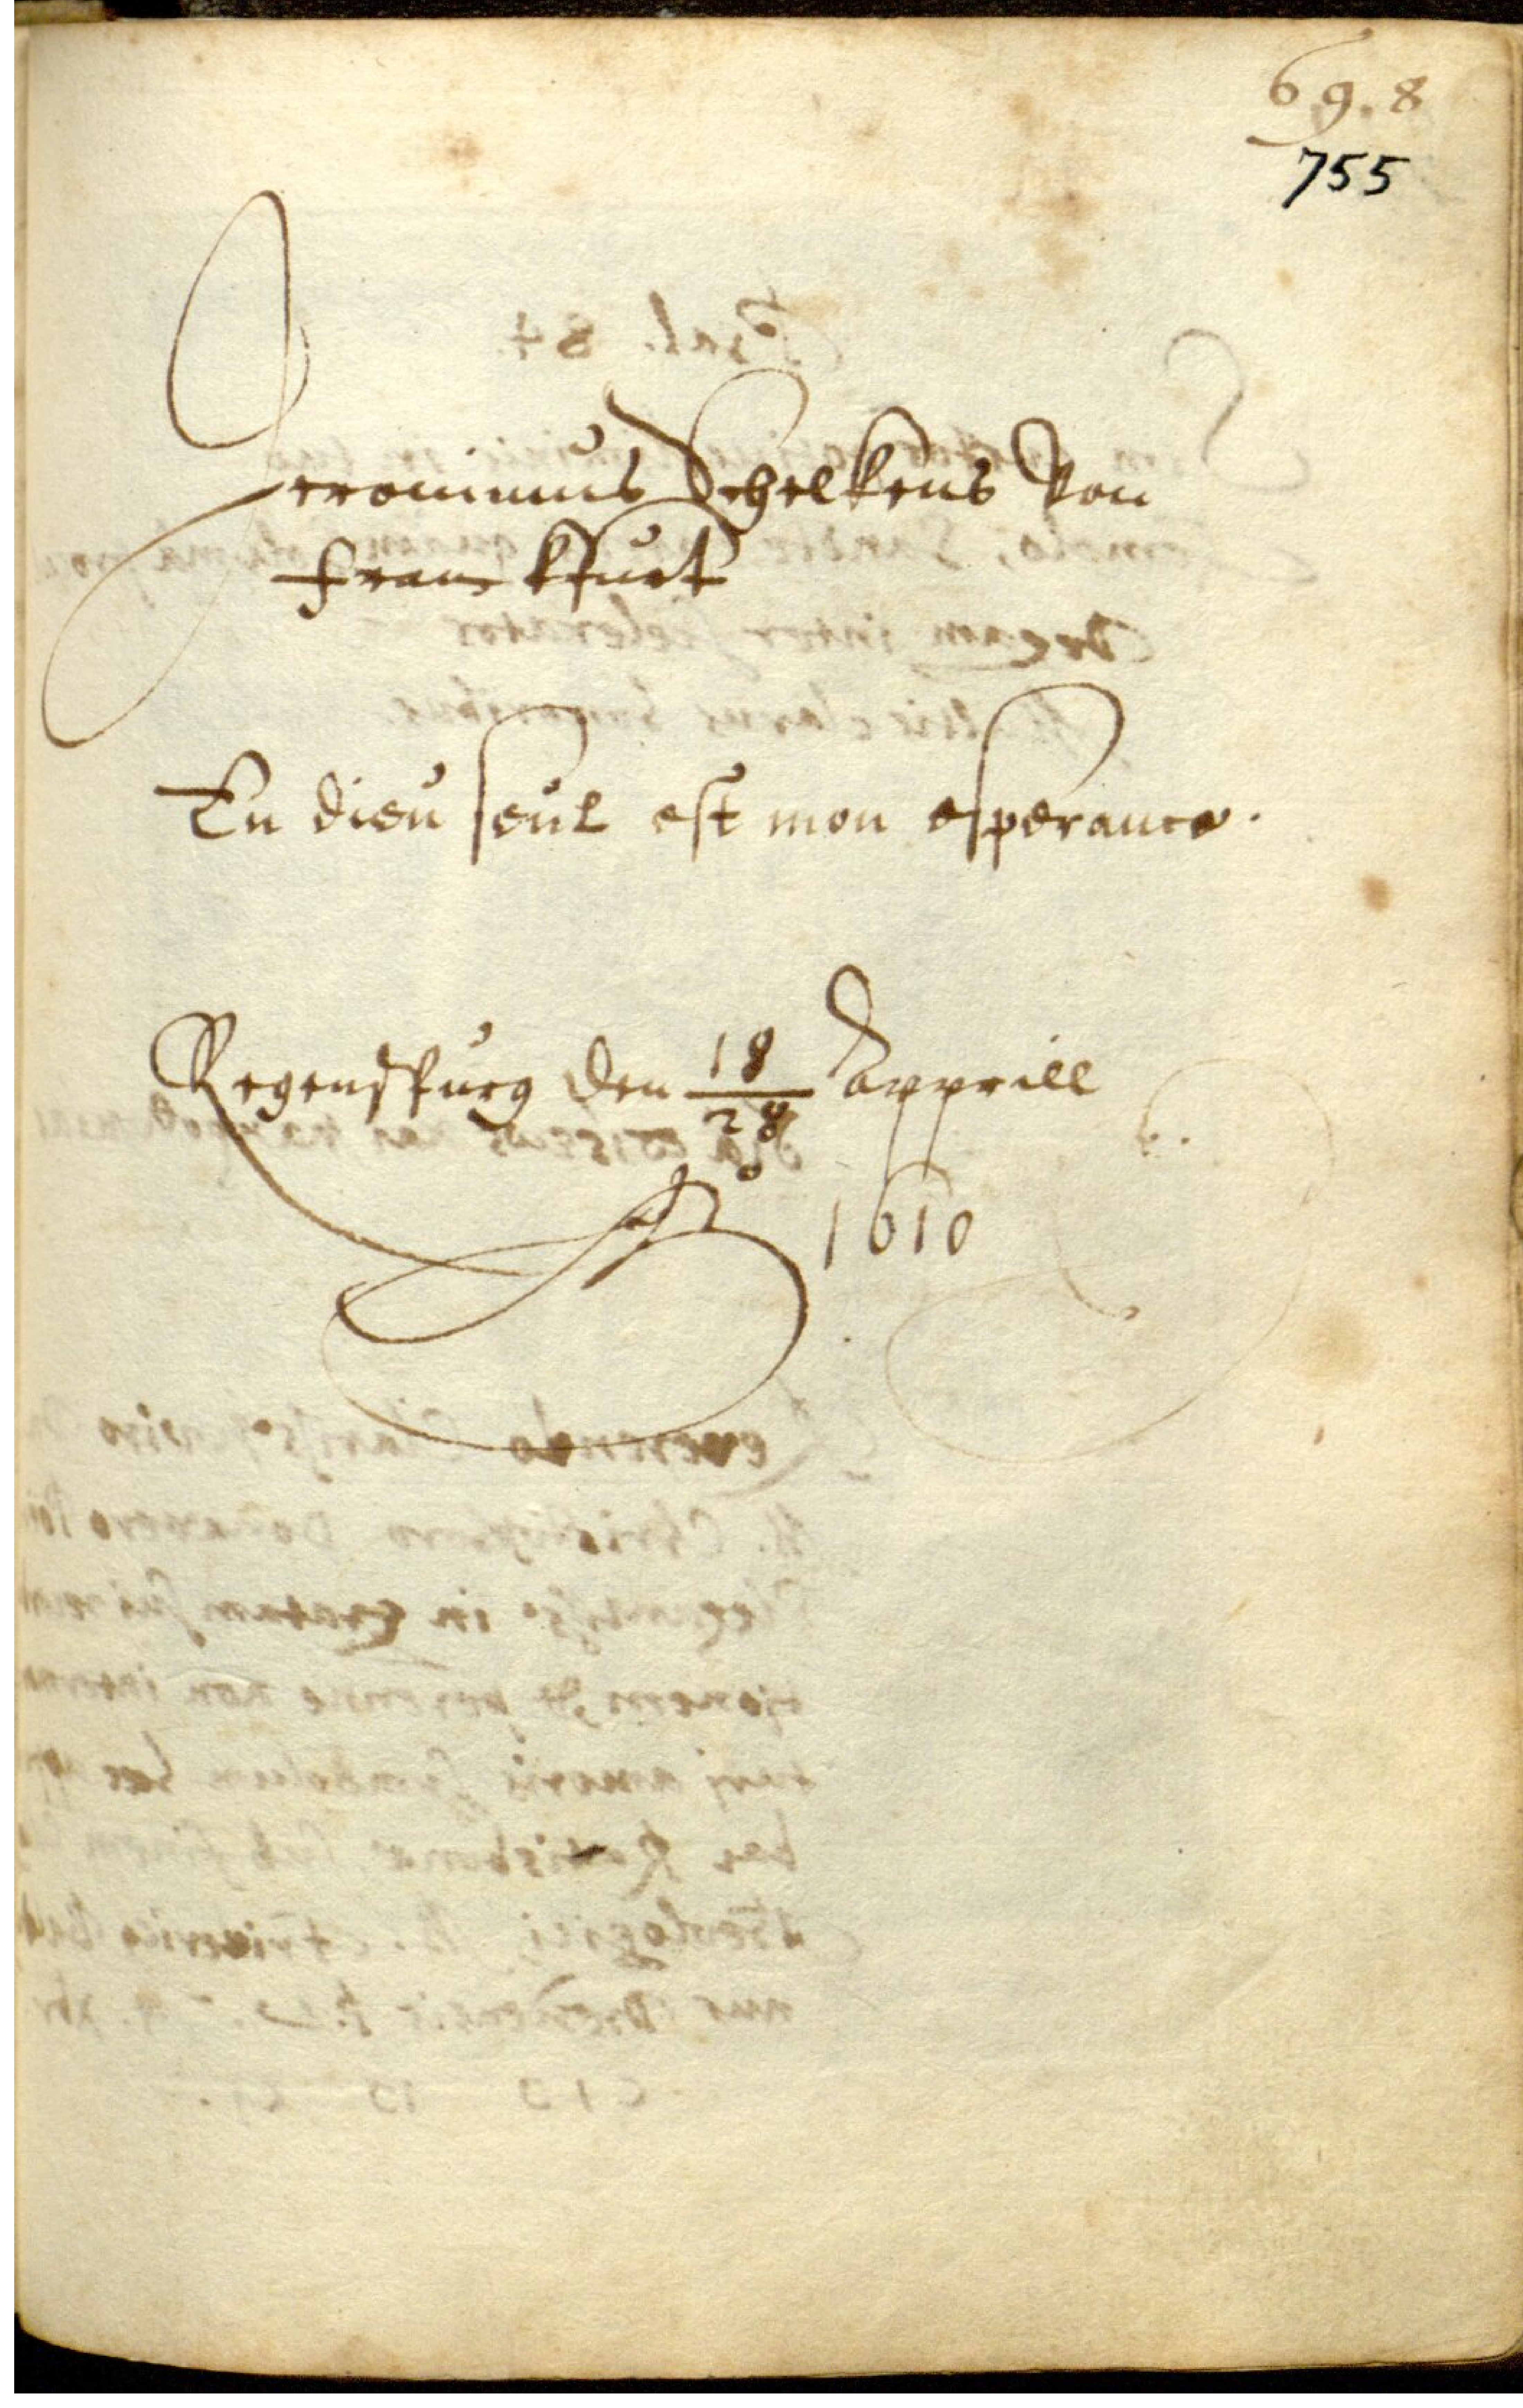 69.8
755
Jeronimus Schelkens Von
franckfurt
En dieu seul est mon esperance.
Regenspurg den 18/28 Apprill
1610